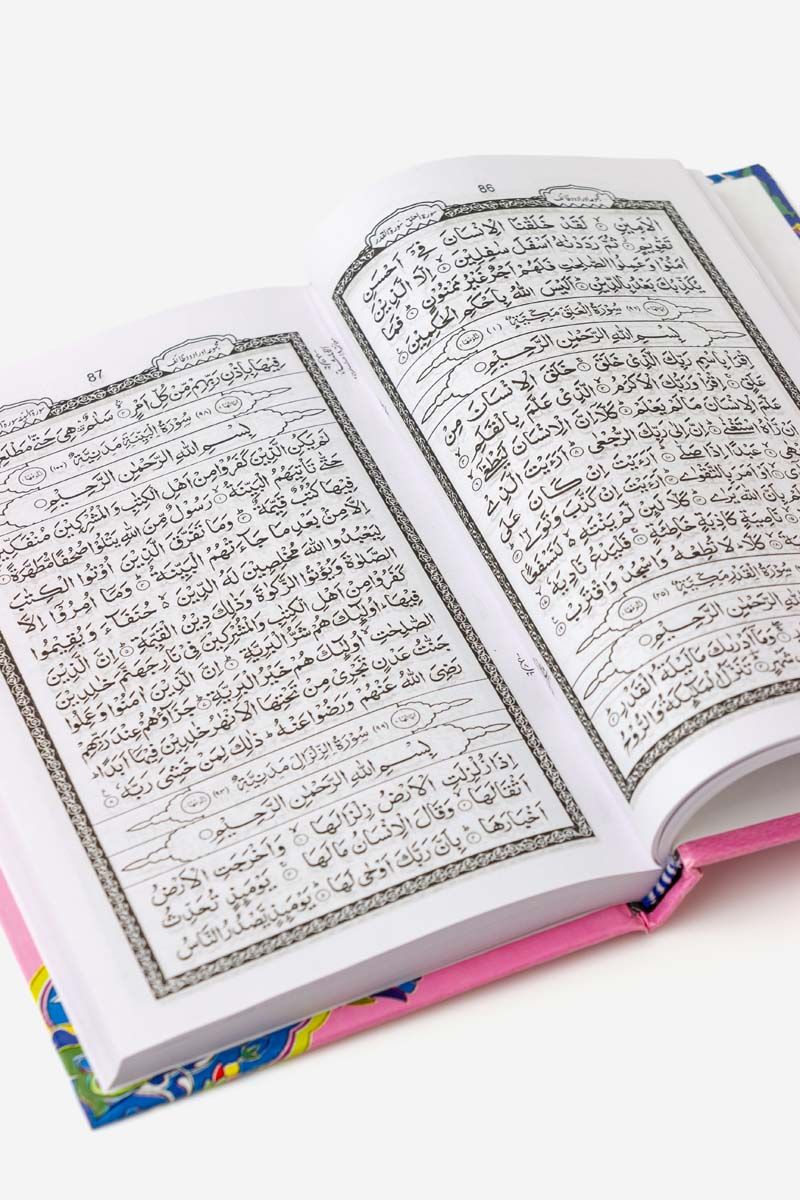 86
سورة العلق سورة القدر
الْاَمِيْنِ ۙ لَقَدْ خَلَقْنَا الْاِنْسَانَ فِيْۤ اَحْسَنِ
تَقْوِيْمٍ ۙ ثُمَّ رَدَدْنٰهُ اَسْفَلَ سٰفِلِيْنَ ۙ اِلَّا الَّذِيْنَ
اٰمَنُوْا وَعَمِلُوا الصّٰلِحٰتِ فَلَهُمْ اَجْرٌ غَيْرُ مَمْنُوْنٍ ؕ فَمَا
يُكَذِّبُكَ بَعْدُ بِالدِّيْنِ ؕ اَلَيْسَ اللّٰهُ بِاَحْكَمِ الْحٰكِمِيْنَ
سُوْرَةُ الْعَلَقِ مَكِّيَّةٌ (۱)
بِسْمِ اللّٰهِ الرَّحْمٰنِ الرَّحِيْمِ
اِقْرَاْ بِاسْمِ رَبِّكَ الَّذِيْ خَلَقَ ۚ خَلَقَ الْاِنْسَانَ مِنْ
عَلَقٍ ۚ اِقْرَاْ وَرَبُّكَ الْاَكْرَمُ ۙ الَّذِيْ عَلَّمَ بِالْقَلَمِ ۙ
عَلَّمَ الْاِنْسَانَ مَا لَمْ يَعْلَمْ ؕ كَلَّاۤ اِنَّ الْاِنْسَانَ لَيَطْغٰۤى
اَنْ رَّاٰهُ اسْتَغْنٰى ؕ اِنَّ اِلٰى رَبِّكَ الرُّجْعٰى ؕ اَرَءَيْتَ الَّذِيْ
عَبْدًا اِذَا صَلّٰى ؕ اَرَءَيْتَ اِنْ كَانَ عَلَى
اَوْ اَمَرَ بِالتَّقْوٰى ؕ اَرَءَيْتَ اِنْ كَذَّبَ وَتَوَلّٰى
بِاَنَّ اللّٰهَ يَرٰى ؕ كَلَّا لَئِنْ لَّمْ يَنْتَهِ ۙ لَنَسْفَعًا
نَاصِيَةٍ كَاذِبَةٍ خَاطِئَةٍ ۚ فَلْيَدْعُ نَادِيَهٗ
كَلَّا لَا تُطِعْهُ وَاسْجُدْ وَاقْتَرِبْ
سُوْرَةُ الْقَدْرِ مَكِّيَّةٌ (۲۵)
بِسْمِ اللّٰهِ الرَّحْمٰنِ الرَّحِيْمِ
وَمَاۤ اَدْرٰىكَ مَا لَيْلَةُ الْقَدْرِ
تَنَزَّلُ الْمَلٰٓئِكَةُ وَالرُّوْحُ
87
فِيْهَا بِاِذْنِ رَبِّهِمْ ۚ مِّنْ كُلِّ اَمْرٍ ۛ سَلٰمٌ ۛ هِيَ حَتّٰى مَطْلَعِ
سُوْرَةُ الْبَيِّنَةِ مَدَنِيَّةٌ (۱۰۰)
بِسْمِ اللّٰهِ الرَّحْمٰنِ الرَّحِيْمِ
لَمْ يَكُنِ الَّذِيْنَ كَفَرُوْا مِنْ اَهْلِ الْكِتٰبِ وَالْمُشْرِكِيْنَ مُنْفَكِّيْنَ
حَتّٰى تَاْتِيَهُمُ الْبَيِّنَةُ ۙ رَسُوْلٌ مِّنَ اللّٰهِ يَتْلُوْا صُحُفًا مُّطَهَّرَةً
فِيْهَا كُتُبٌ قَيِّمَةٌ ؕ وَمَا تَفَرَّقَ الَّذِيْنَ اُوْتُوا الْكِتٰبَ
اِلَّا مِنْۢ بَعْدِ مَا جَآءَتْهُمُ الْبَيِّنَةُ ؕ وَمَاۤ اُمِرُوْۤا اِلَّا
لِيَعْبُدُوا اللّٰهَ مُخْلِصِيْنَ لَهُ الدِّيْنَ ۙ حُنَفَآءَ وَيُقِيْمُوا
الصَّلٰوةَ وَيُؤْتُوا الزَّكٰوةَ وَذٰلِكَ دِيْنُ الْقَيِّمَةِ ؕ اِنَّ الَّذِيْنَ
كَفَرُوْا مِنْ اَهْلِ الْكِتٰبِ وَالْمُشْرِكِيْنَ فِيْ نَارِ جَهَنَّمَ خٰلِدِيْنَ
فِيْهَا ؕ اُولٰٓئِكَ هُمْ شَرُّ الْبَرِيَّةِ ؕ اِنَّ الَّذِيْنَ اٰمَنُوْا وَعَمِلُوا
الصّٰلِحٰتِ ۙ اُولٰٓئِكَ هُمْ خَيْرُ الْبَرِيَّةِ ؕ جَزَآؤُهُمْ عِنْدَ رَبِّهِمْ
جَنّٰتُ عَدْنٍ تَجْرِيْ مِنْ تَحْتِهَا الْاَنْهٰرُ خٰلِدِيْنَ فِيْهَاۤ اَبَدًا ؕ
رَضِيَ اللّٰهُ عَنْهُمْ وَرَضُوْا عَنْهُ ؕ ذٰلِكَ لِمَنْ خَشِيَ رَبَّهٗ
سُوْرَةُ الزِّلْزَالِ مَدَنِيَّةٌ (۹۳)
بِسْمِ اللّٰهِ الرَّحْمٰنِ الرَّحِيْمِ
اِذَا زُلْزِلَتِ الْاَرْضُ زِلْزَالَهَا ۙ وَاَخْرَجَتِ الْاَرْضُ
اَثْقَالَهَا ۙ وَقَالَ الْاِنْسَانُ مَا لَهَا ۚ يَوْمَئِذٍ تُحَدِّثُ
اَخْبَارَهَا ۙ بِاَنَّ رَبَّكَ اَوْحٰى لَهَا ؕ يَوْمَئِذٍ يَّصْدُرُ النَّاسُ